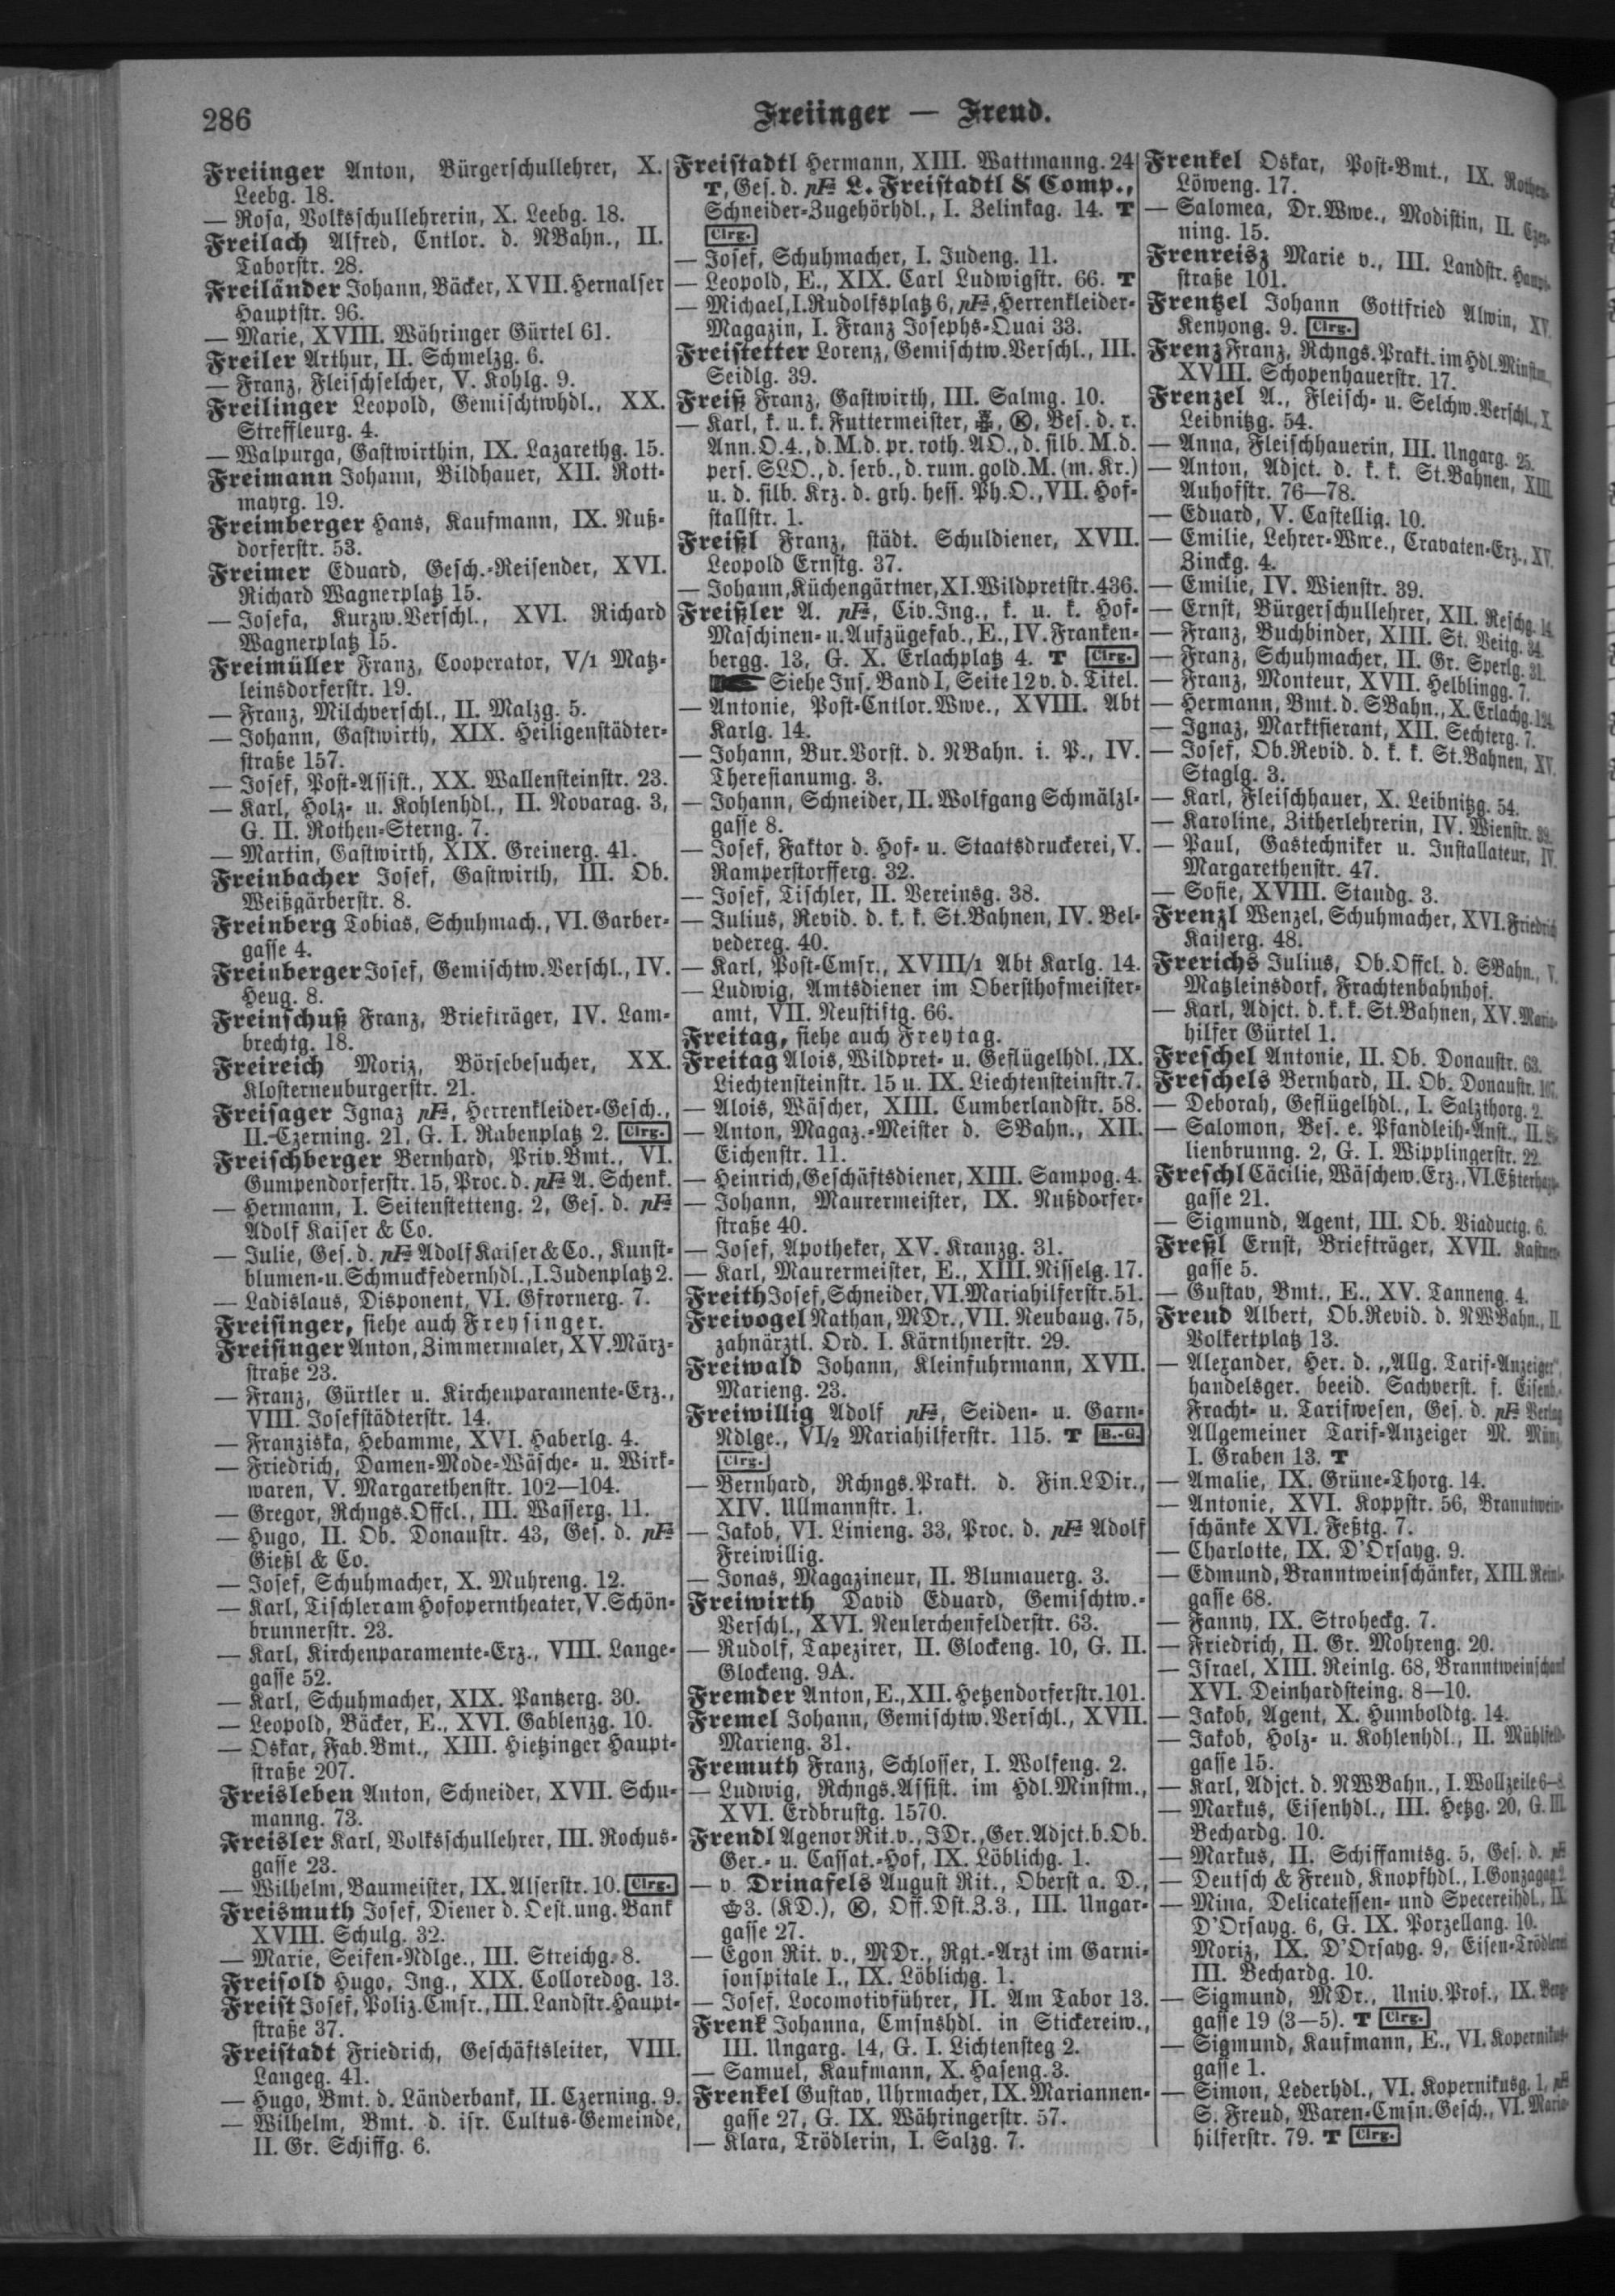 286
Freiinger — Freud.
Freiinger Anton, Bürgerschullehrer, X.
Leebg. 18.
— Rosa, Volksschullehrerin, X. Leebg. 18.
Freilach Alfred, Cntlor. d. NBahn., II.
Taborstr. 28.
Freiländer Johann, Bäcker, XVII. Hernalser
Hauptstr. 96.
— Marie, XVIII. Währinger Gürtel 61.
Freiler Arthur, II. Schmelzg. 6.
— Franz, Fleischselcher, V. Kohlg. 9.
Freilinger Leopold, Gemischtwhdl., XX.
Streffleurg. 4.
— Walpurga, Gastwirthin, IX. Lazarethg. 15.
Freimann Johann, Bildhauer, XII. Rott-
mayrg. 19.
Freimberger Hans, Kaufmann, IX. Nuß-
dorferstr. 53.
Freimer Eduard, Gesch.-Reisender, XVI.
Richard Wagnerplatz 15.
— Josefa, Kurzw.Verschl., XVI. Richard
Wagnerplatz 15.
Freimüller Franz, Cooperator, V/1 Matz-
leinsdorferstr. 19.
— Franz, Milchverschl., II. Malzg. 5.
— Johann, Gastwirth, XIX. Heiligenstädter-
straße 157.
— Josef, Post-Assist., XX. Wallensteinstr. 23.
— Karl, Holz- u. Kohlenhdl., II. Novarag. 3,
G. II. Rothen-Sterng. 7.
— Martin, Gastwirth, XIX. Greinerg. 41.
Freinbacher Josef, Gastwirth, III. Ob.
Weißgärberstr. 8.
Freinberg Tobias, Schuhmach., VI. Garber-
gasse 4.
Freinberger Josef, Gemischtw.Verschl., IV.
Heug. 8.
Freinschuß Franz, Briefträger, IV. Lam-
brechtg. 18.
Freireich Moriz, Börsebesucher, XX.
Klosterneuburgerstr. 21.
Freisager Ignaz pF=, Herrenkleider-Gesch.,
II. Czerning. 21, G. I. Rabenplatz 2. Clrg.
Freischberger Bernhard, Priv.Bmt., VI.
Gumpendorferstr. 15, Proc. d. pF= A. Schenk.
— Hermann, I. Seitenstetteng. 2, Ges. d. pF=
Adolf Kaiser & Co.
— Julie, Ges. d. pF= Adolf Kaiser & Co., Kunst-
blumen- u. Schmuckfedernhdl., I. Judenplatz 2.
— Ladislaus, Disponent, VI. Gfrornerg. 7.
Freisinger, siehe auch Freysinger.
Freisinger Anton, Zimmermaler, XV. März-
straße 23.
— Franz, Gürtler u. Kirchenparamente-Erz.,
VIII. Josefstädterstr. 14.
— Franziska, Hebamme, XVI. Haberlg. 4.
— Friedrich, Damen-Mode-Wäsche- u. Wirk-
waren, V. Margarethenstr. 102—104.
— Gregor, Rchngs.Offcl., III. Wasserg. 11.
— Hugo, II. Ob. Donaustr. 43, Ges. d. pF=
Gießl & Co.
— Josef, Schuhmacher, X. Muhreng. 12.
— Karl, Tischler am Hofoperntheater, V. Schön-
brunnerstr. 23.
— Karl, Kirchenparamente-Erz., VIII. Lange-
gasse 52.
— Karl, Schuhmacher, XIX. Pantzerg. 30.
— Leopold, Bäcker, E., XVI. Gablenzg. 10.
— Oskar, Fab.Bmt., XIII. Hietzinger Haupt-
straße 207.
Freisleben Anton, Schneider, XVII. Schu-
manng. 73.
Freisler Karl, Volksschullehrer, III. Rochus-
gasse 23.
— Wilhelm, Baumeister, IX. Alserstr. 10. Clrg.
Freismuth Josef, Diener d. Oest.ung. Bank
XVIII. Schulg. 32.
— Marie, Seifen-Ndlge., III. Streichg. 8.
Freisold Hugo, Ing., XIX. Colloredog. 13.
Freist Josef, Poliz.Cmsr., III. Landstr. Haupt-
straße 37.
Freistadt Friedrich, Geschäftsleiter, VIII.
Langeg. 41.
— Hugo, Bmt. d. Länderbank, II. Czerning. 9.
— Wilhelm, Bmt. d. isr. Cultus-Gemeinde,
II. Gr. Schiffg. 6.
Freistadtl Hermann, XIII. Wattmanng. 24
T, Ges. d. pF= L. Freistadtl & Comp.,
Schneider-Zugehörhdl., I. Zelinkag. 14. T
Clrg.
— Josef, Schuhmacher, I. Judeng. 11.
— Leopold, E., XIX. Carl Ludwigstr. 66. T
— Michael, I. Rudolfsplatz 6, pF=, Herrenkleider-
Magazin, I. Franz Josephs-Quai 33.
Freistetter Lorenz, Gemischtw.Verschl., III.
Seidlg. 39.
Freiß Franz, Gastwirth, III. Salmg. 10.
— Karl, k. u. k. Futtermeister, K, Bes. d. r.
Ann.O.4., d.M.d. pr. roth. AO., d. silb. M.d.
pers. SLO., d. serb., d. rum. gold. M. (m. Kr.)
u. d. silb. Krz. d. grh. hess. Ph.O., VII. Hof-
stallstr. 1.
Freißl Franz, städt. Schuldiener, XVII.
Leopold Ernstg. 37.
— Johann, Küchengärtner, XI. Wildpretstr. 436.
Freißler A. pF=, Civ.Ing., k. u. k. Hof-
Maschinen- u. Aufzügefab., E., IV. Franken-
bergg. 13, G. X. Erlachplatz 4. T Clrg.
Siehe Ins. Band I, Seite 12 v. d. Titel.
— Antonie, Post-Cntlor.Wwe., XVIII. Abt
Karlg. 14.
— Johann, Bur.Vorst. d. NBahn. i. P., IV.
Theresianumg. 3.
— Johann, Schneider, II. Wolfgang Schmälzl-
gasse 8.
— Josef, Faktor d. Hof- u. Staatsdruckerei, V.
Ramperstorfferg. 32.
— Josef, Tischler, II. Vereinsg. 38.
— Julius, Revid. d. k. k. St.Bahnen, IV. Bel-
vedereg. 40.
— Karl, Post-Cmsr., XVIII/1 Abt Karlg. 14.
— Ludwig, Amtsdiener im Obersthofmeister-
amt, VII. Neustiftg. 66.
Freitag, siehe auch Freytag.
Freitag Alois, Wildpret- u. Geflügelhdl., IX.
Liechtensteinstr. 15 u. IX. Liechtensteinstr. 7.
— Alois, Wäscher, XIII. Cumberlandstr. 58.
— Anton, Magaz.-Meister d. SBahn., XII.
Eichenstr. 11.
— Heinrich, Geschäftsdiener, XIII. Sampog. 4.
— Johann, Maurermeister, IX. Nußdorfer-
straße 40.
— Josef, Apotheker, XV. Kranzg. 31.
— Karl, Maurermeister, E., XIII. Nisselg. 17.
Freith Josef, Schneider, VI. Mariahilferstr. 51.
Freivogel Nathan, MDr., VII. Neubaug. 75,
zahnärztl. Ord. I. Kärnthnerstr. 29.
Freiwald Johann, Kleinfuhrmann, XVII.
Marieng. 23.
Freiwillig Adolf pF=, Seiden- u. Garn-
Ndlge., VI/2 Mariahilferstr. 115. T B.-G.
Clrg.
— Bernhard, Rchngs.Prakt. d. Fin.LDir.,
XIV. Ullmannstr. 1.
— Jakob, VI. Linieng. 33, Proc. d. pF= Adolf
Freiwillig.
— Jonas, Magazineur, II. Blumauerg. 3.
Freiwirth David Eduard, Gemischtw.-
Verschl., XVI. Neulerchenfelderstr. 63.
— Rudolf, Tapezirer, II. Glockeng. 10, G. II.
Glockeng. 9A.
Fremder Anton, E., XII. Hetzendorferstr. 101.
Fremel Johann, Gemischtw.Verschl., XVII.
Marieng. 31.
Fremuth Franz, Schlosser, I. Wolfeng. 2.
— Ludwig, Rchngs.Assist. im Hdl.Minstm.,
XVI. Erdbrustg. 1570.
Frendl Agenor Rit. v., JDr., Ger.Adjct. b. Ob.
Ger.- u. Cassat.-Hof, IX. Löblichg. 1.
— v. Drinafels August Rit., Oberst a. D.,
3. (KD.), K, Off.Dst.Z.3., III. Ungar-
gasse 27.
— Egon Rit. v., MDr., Rgt.-Arzt im Garni-
sonspitale I., IX. Löblichg. 1.
— Josef, Locomotivführer, II. Am Tabor 13.
Frenk Johanna, Cmsnshdl. in Stickereiw.,
III. Ungarg. 14, G. I. Lichtensteg 2.
— Samuel, Kaufmann, X. Haseng. 3.
Frenkel Gustav, Uhrmacher, IX. Mariannen-
gasse 27, G. IX. Währingerstr. 57.
— Klara, Trödlerin, I. Salzg. 7.
Frenkel Oskar, Post-Bmt., IX. Rothen-
Löweng. 17.
— Salomea, Dr.Wwe., Modistin, II. Czer-
ning. 15.
Frenreisz Marie v., III. Landstr. Haupt-
straße 101.
Frentzel Johann Gottfried Alwin, XV.
Kenyong. 9. Clrg.
Frenz Franz, Rchngs.Prakt. im Hdl.Minstm.
XVIII. Schopenhauerstr. 17.
Frenzel A., Fleisch- u. Selchw.Verschl., X.
Leibnitzg. 54.
— Anna, Fleischhauerin, III. Ungarg. 25.
— Anton, Adjct. d. k. k. St.Bahnen, XIII.
Auhofstr. 76—78.
— Eduard, V. Castellig. 10.
— Emilie, Lehrer-Wwe., Cravaten-Erz., XV.
Zinckg. 4.
— Emilie, IV. Wienstr. 39.
— Ernst, Bürgerschullehrer, XII. Reschg. 14.
— Franz, Buchbinder, XIII. St. Veitg. 34.
— Franz, Schuhmacher, II. Gr. Sperlg. 31.
— Franz, Monteur, XVII. Helblingg. 7.
— Hermann, Bmt. d. SBahn., X. Erlachg. 124.
— Ignaz, Marktfierant, XII. Sechterg. 7.
— Josef, Ob.Revid. d. k. k. St.Bahnen, XV.
Staglg. 3.
— Karl, Fleischhauer, X. Leibnitzg. 54.
— Karoline, Zitherlehrerin, IV. Wienstr. 39.
— Paul, Gastechniker u. Installateur, IV.
Margarethenstr. 47.
— Sofie, XVIII. Staudg. 3.
Frenzl Wenzel, Schuhmacher, XVI. Friedrich
Kaiserg. 48.
Frerichs Julius, Ob.Offcl. d. SBahn., V.
Matzleinsdorf, Frachtenbahnhof.
— Karl, Adjct. d. k. k. St.Bahnen, XV. Maria-
hilfer Gürtel 1.
Freschel Antonie, II. Ob. Donaustr. 63.
Freschels Bernhard, II. Ob. Donaustr. 107.
— Deborah, Geflügelhdl., I. Salzthorg. 2.
— Salomon, Bes. e. Pfandleih-Anst., II.
lienbrunng. 2, G. I. Wipplingerstr. 22.
Freschl Cäcilie, Wäschew.Erz., VI. Eßterhazy-
gasse 21.
— Sigmund, Agent, III. Ob. Viaductg. 6.
Freßl Ernst, Briefträger, XVII. Kastner-
gasse 5.
— Gustav, Bmt., E., XV. Tanneng. 4.
Freud Albert, Ob.Revid. d. NWBahn., II.
Volkertplatz 13.
— Alexander, Her. d. „Allg. Tarif-Anzeiger",
handelsger. beeid. Sachverst. f. Eisenb.-
Fracht- u. Tarifwesen, Ges. d. pF= Verlag
Allgemeiner Tarif-Anzeiger M. Münz,
I. Graben 13. T
— Amalie, IX. Grüne-Thorg. 14.
— Antonie, XVI. Koppstr. 56, Branntwein-
schänke XVI. Feßtg. 7.
— Charlotte, IX. D'Orsayg. 9.
— Edmund, Branntweinschänker, XIII. Reinl-
gasse 68.
— Fanny, IX. Stroheckg. 7.
— Friedrich, II. Gr. Mohreng. 20.
— Israel, XIII. Reinlg. 68, Branntweinschank
XVI. Deinhardsteing. 8—10.
— Jakob, Agent, X. Humboldtg. 14.
— Jakob, Holz- u. Kohlenhdl., II. Mühlfeld-
gasse 15.
— Karl, Adjct. d. NWBahn., I. Wollzeile 6—8.
— Markus, Eisenhdl., III. Hetzg. 20, G. III.
Bechardg. 10.
— Markus, II. Schiffamtsg. 5, Ges. d. pF=
— Deutsch & Freud, Knopfhdl., I. Gonzagag. 2.
— Mina, Delicatessen- und Specereihdl., IX.
D'Orsayg. 6, G. IX. Porzellang. 10.
Moriz, IX. D'Orsayg. 9, Eisen-Trödlerei
III. Bechardg. 10.
— Sigmund, MDr., Univ.Prof., IX. Berg-
gasse 19 (3—5). T Clrg.
— Sigmund, Kaufmann, E., VI. Kopernikus-
gasse 1.
— Simon, Lederhdl., VI. Kopernikusg. 1, pF=
S. Freud, Waren-Cmsn.Gesch., VI. Maria-
hilferstr. 79. T Clrg.